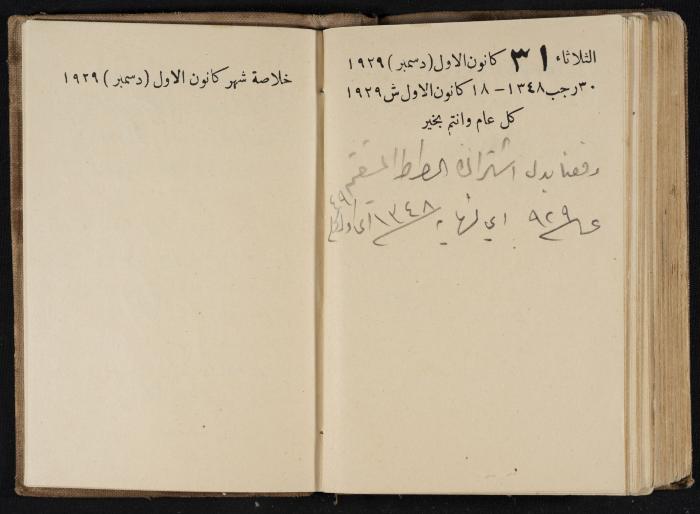 الثلاثاء ٣١ كانون الاول (دسمبر) ١٩٢٩
٣٠ رجب ١٣٤٨ – ١٨ كانون الاول ش ١٩٢٩
كل عام وانتم بخير
دفعنا بدل اشتراك
عن ٩٢٩ اي نهاية ١٣٤٨
خلاصة شهر كانون الاول (دسمبر) ١٩٢٩